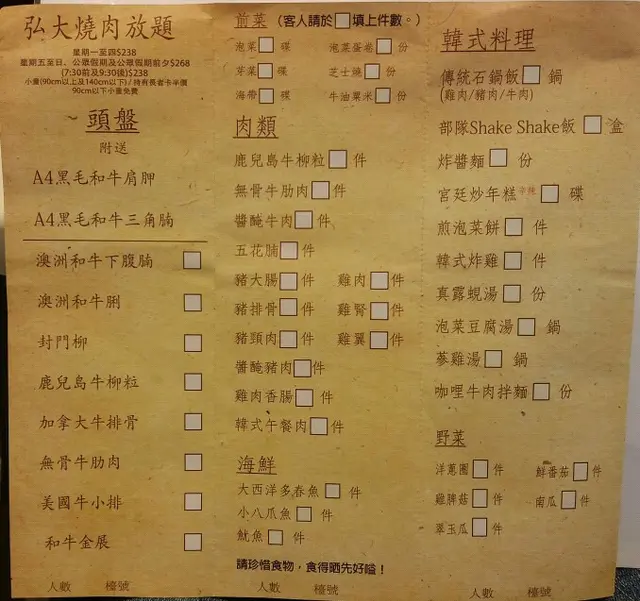 弘大燒肉放題
星期一至四$238
星期五至日、公眾假期及公眾假期前夕$268
(7:30前及9:30後)$238
小童(90cm以上及140cm以下)/持有長者卡半價
90cm以下小童免費
頭盤
附送
A4黑毛和牛肩胛
A4黑毛和牛三角腩
澳洲和牛下腹腩
澳洲和牛脷
封門柳
鹿兒島牛柳粒
加拿大牛排骨
無骨牛肋肉
美國牛小排
和牛金展
人數 檯號
前菜 (客人請於 填上件數。)
泡菜 碟 泡菜蛋卷 份
芽菜 碟 芝士燒 份
海帶 碟 牛油粟米 份
肉類
鹿兒島牛柳粒 件
無骨牛肋肉 件
醬醃牛肉 件
五花腩 件
豬大腸 件 雞肉 件
豬排骨 件 雞腎 件
豬頸肉 件 雞翼 件
醬醃豬肉 件
雞肉香腸 件
韓式午餐肉 件
海鮮
大西洋多春魚 件
小八爪魚 件
魷魚 件
請珍惜食物，食得晒先好嗌！
人數 檯號
韓式料理
傳統石鍋飯 鍋
(雞肉/豬肉/牛肉)
部隊Shake Shake飯 盒
炸醬麵 份
宮廷炒年糕 辛辣 碟
煎泡菜餅 件
韓式炸雞 件
真露蜆湯 份
泡菜豆腐湯 鍋
蔘雞湯 鍋
咖哩牛肉拌麵 份
野菜
洋蔥圈 件 鮮番茄 件
雞髀菇 件 南瓜 件
翠玉瓜 件
人數 檯號